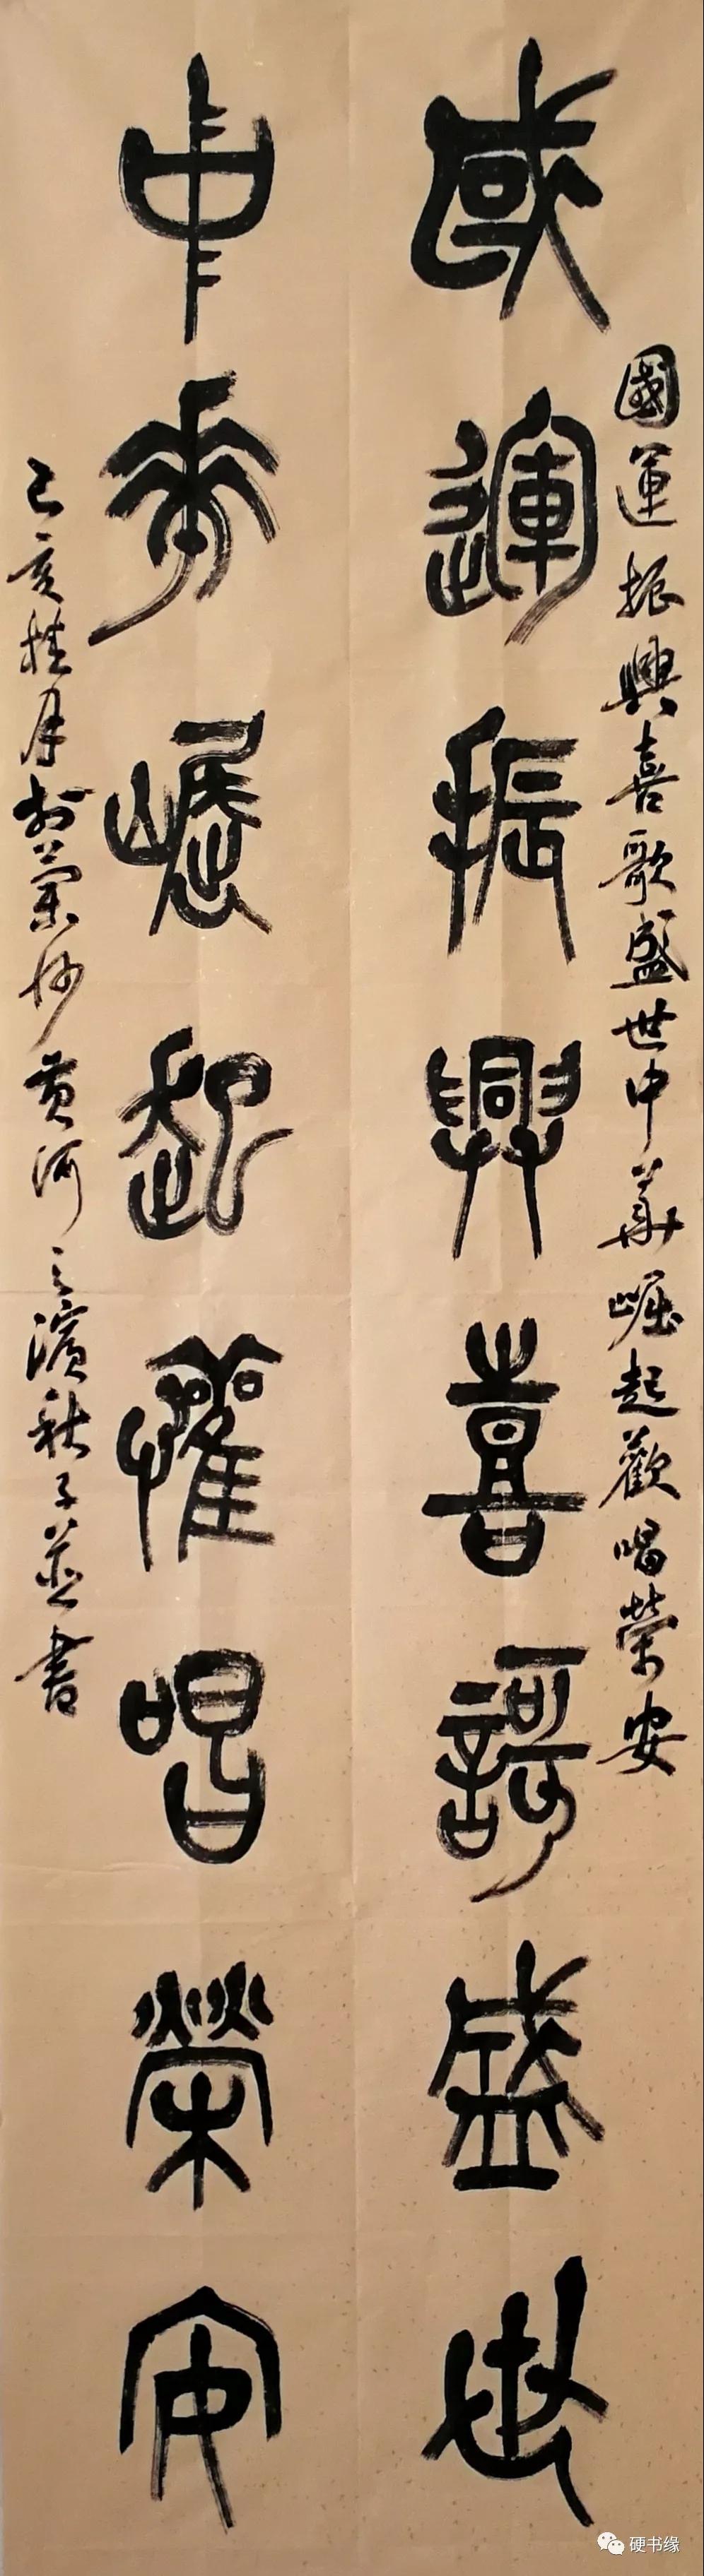 國運振興喜歌盛世中華崛起歡唱榮安
國運振興喜歌盛世
中華崛起歡唱榮安
己亥桂月於蘭州黄河之濱秋子並書
硬书缘